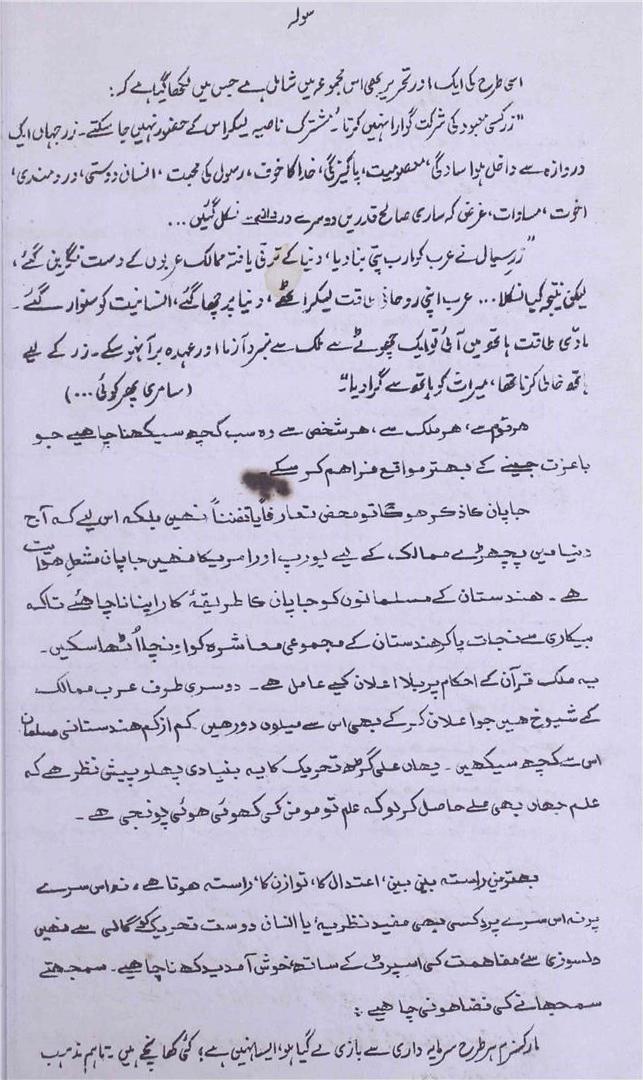 سولہ
اسی طرح کی ایک اور تحریر بھی اس مجموعہ میں شامل ہے جس میں لکھا گیا ہے کہ:
"زر کسی معبود کی شرکت گوارا نہیں کرتا۔ مشترک ناصیہ لیکر اس کے حضور نہیں جا سکتے۔ زر جہاں ایک
دروازہ سے داخل ہوا سادگی، معصومیت، پاکیزگی، خدا کا خوف، رسول کی محبت، انسان دوستی، دردمندی،
اخوت، مساوات، غرض کہ ساری صالح قدریں دوسرے در سے نکل گئیں ...
"زرِ سیال نے عرب کو ارب پتی بنا دیا، دنیا کے ترقی یافتہ ممالک عربوں کے دست نگر بن گئے،
لیکن نتیجہ کیا نکلا... عرب اپنی روحانی طاقت لیکر اٹھے، دنیا پر چھا گئے، انسانیت کو سنوار گئے۔
مادّی طاقت ہاتھ میں آئی تو ایک چھوٹے سے ملک سے نبرد آزما اور عہدہ برآ نہ ہو سکے۔ زر کے لیے
ہاتھ خالی کرنا تھا، میراث کو ہاتھ سے گرا دیا"۔ (سامری پھر کوئی ...)
ہر قوم سے، ہر ملک سے، ہر شخص سے وہ سب کچھ سیکھنا چاہیے جو
باعزت جینے کے بہتر مواقع فراہم کر سکے
جاپان کا ذکر ہوگا تو محض تعارفاً یا تفنناً نہیں بلکہ اس لیے کہ آج
دنیا میں پچھڑے ممالک کے لیے یورپ اور امریکا نہیں جاپان مشعلِ ہدایت
ہے۔ ہندستان کے مسلمانوں کو جاپان کا طریقۂ کار اپنانا چاہئے تاکہ
بیکاری سے نجات پا کر ہندستان کے مجموعی معاشرہ کو اونچا اُٹھا سکیں۔
یہ ملک قرآن کے احکام پر بلا اعلان کیے عامل ہے۔ دوسری طرف عرب ممالک
کے شیوخ ہیں جو اعلان کر کے بھی اس سے میلوں دور ہیں۔ کم از کم ہندستانی مسلمان
اس سے کچھ سیکھیں۔ یہاں علی گڑھ تحریک کا یہ بنیادی پہلو پیش نظر ہے کہ
علم جہاں بھی ملے حاصل کر لو کہ علم تو مومن کی کھوئی ہوئی پونجی ہے۔
بہترین راستہ بیں بیں، اعتدال کا، توازن کا، راستہ ہوتا ہے، نہ اس سرے
پر نہ اس سرے پر۔ کسی بھی مفید نظریۂ یا انسان دوست تحریک کو گالی سے نہیں
دلسوزی سے مفاہمت کی اسپرٹ کے ساتھ خوش آمدید کہنا چاہیے۔ سمجھنے
سمجھانے کی فضا ہونی چاہیے:
مارکسزم ہر طرح سرمایہ داری سے بازی لے گیا ہو، ایسا نہیں ہے؛ کئی کھانچے ہیں۔ تاہم مذہب